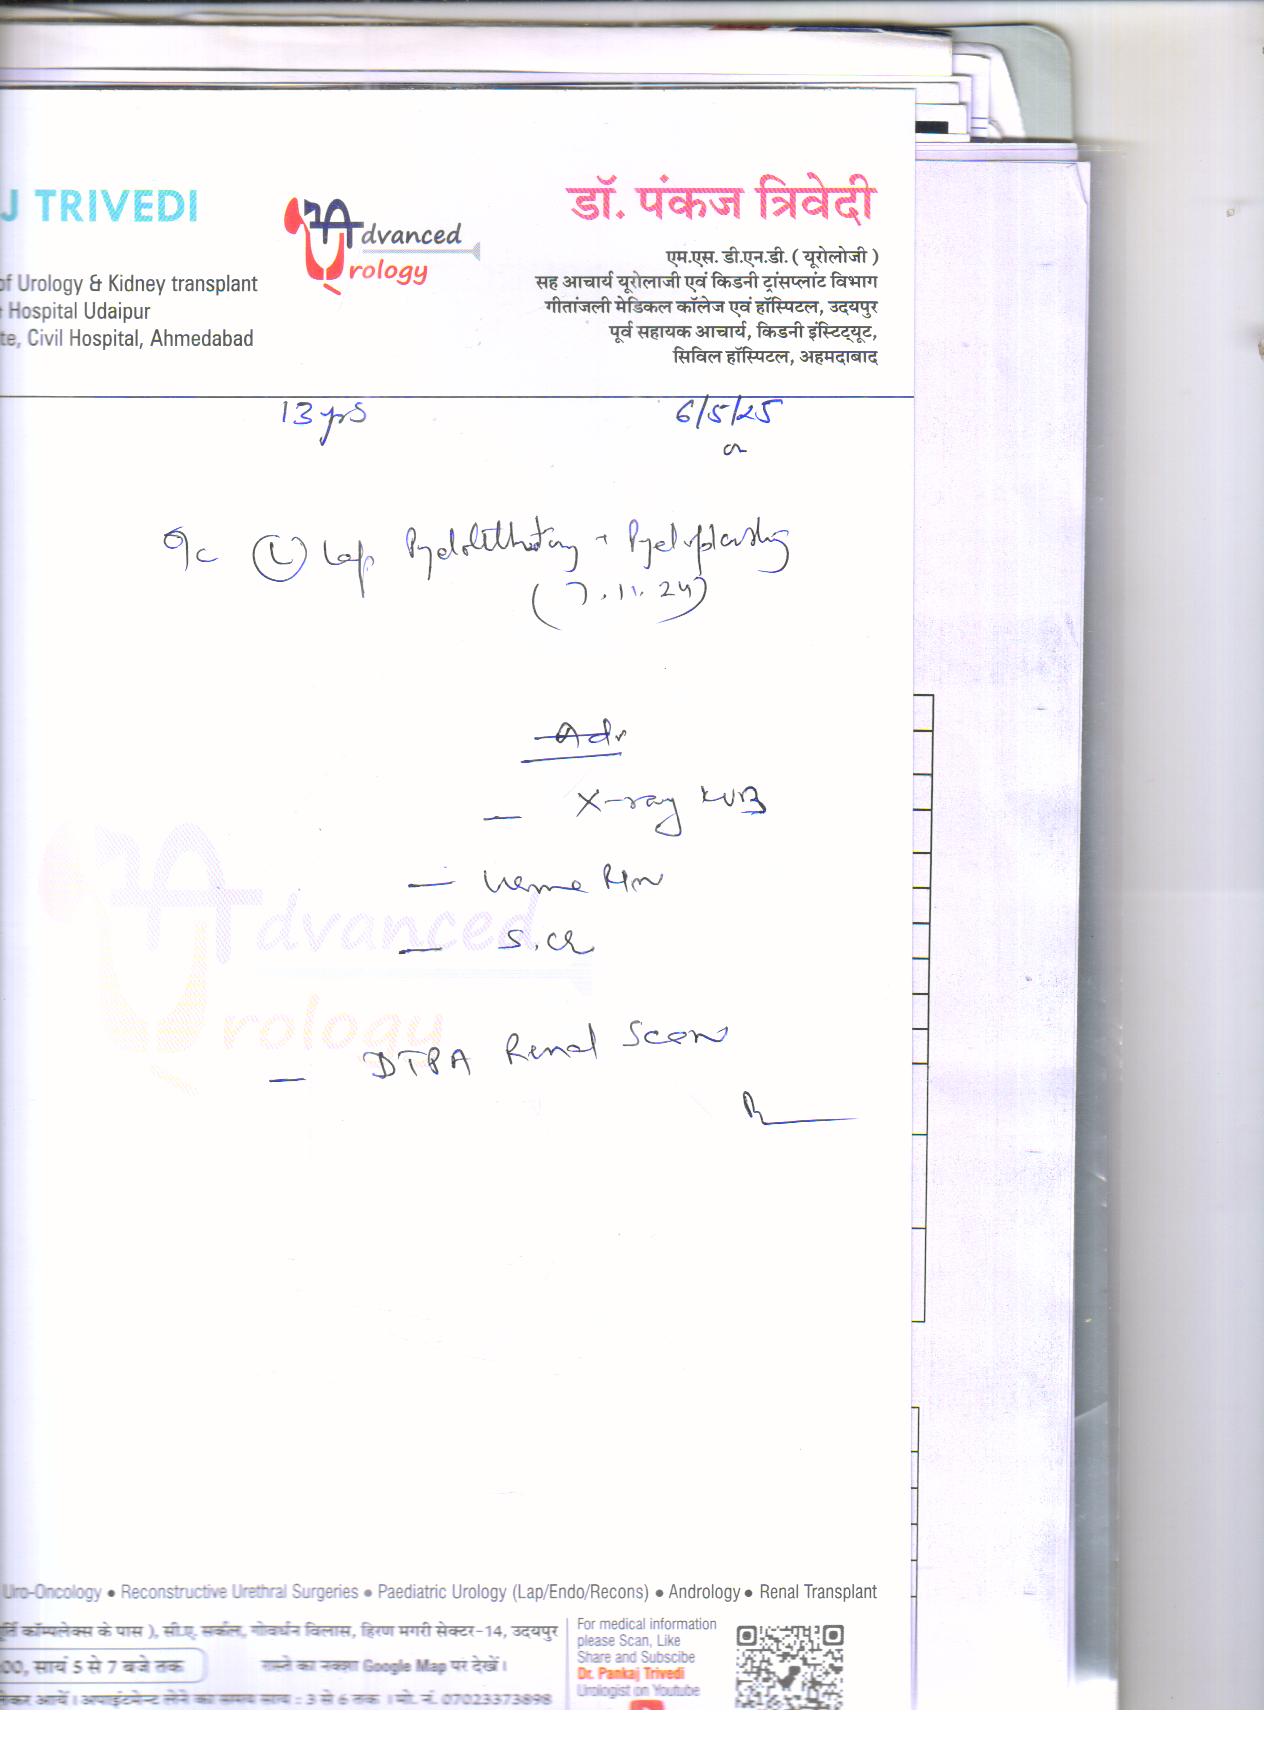 J TRIVEDI
of Urology & Kidney transplant
Hospital Udaipur
te, Civil Hospital, Ahmedabad
Advanced
Urology
डॉ. पंकज त्रिवेदी
एम.एस. डी.एन.डी. ( यूरोलोजी )
सह आचार्य यूरोलाजी एवं किडनी ट्रांसप्लांट विभाग
गीतांजली मेडिकल कॉलेज एवं हॉस्पिटल, उदयपुर
पूर्व सहायक आचार्य, किडनी इंस्टिट्यूट,
सिविल हॉस्पिटल, अहमदाबाद
13 yrs
6/5/25
(L) Lap Pyelolithotomy + Pyeloplasty
(7.11.24)
Adv
— X-ray KUB
— Urine R/M
— S.Cr
— DTPA Renal Scan
Advanced
Urology
Uro-Oncology • Reconstructive Urethral Surgeries • Paediatric Urology (Lap/Endo/Recons) • Andrology • Renal Transplant
र्ति कॉम्पलेक्स के पास ), सी.ए. सर्कल, गोवर्धन विलास, हिरण मगरी सेक्टर-14, उदयपुर
00, सायं 5 से 7 बजे तक
रास्ते का नक्शा Google Map पर देखें।
लेकर आयें। अपाइंटमेन्ट लेने का समय सायं : 3 से 6 तक । मो. नं. 07023373898
For medical information
please Scan, Like
Share and Subscibe
Dr. Pankaj Trivedi
Urologist on Youtube